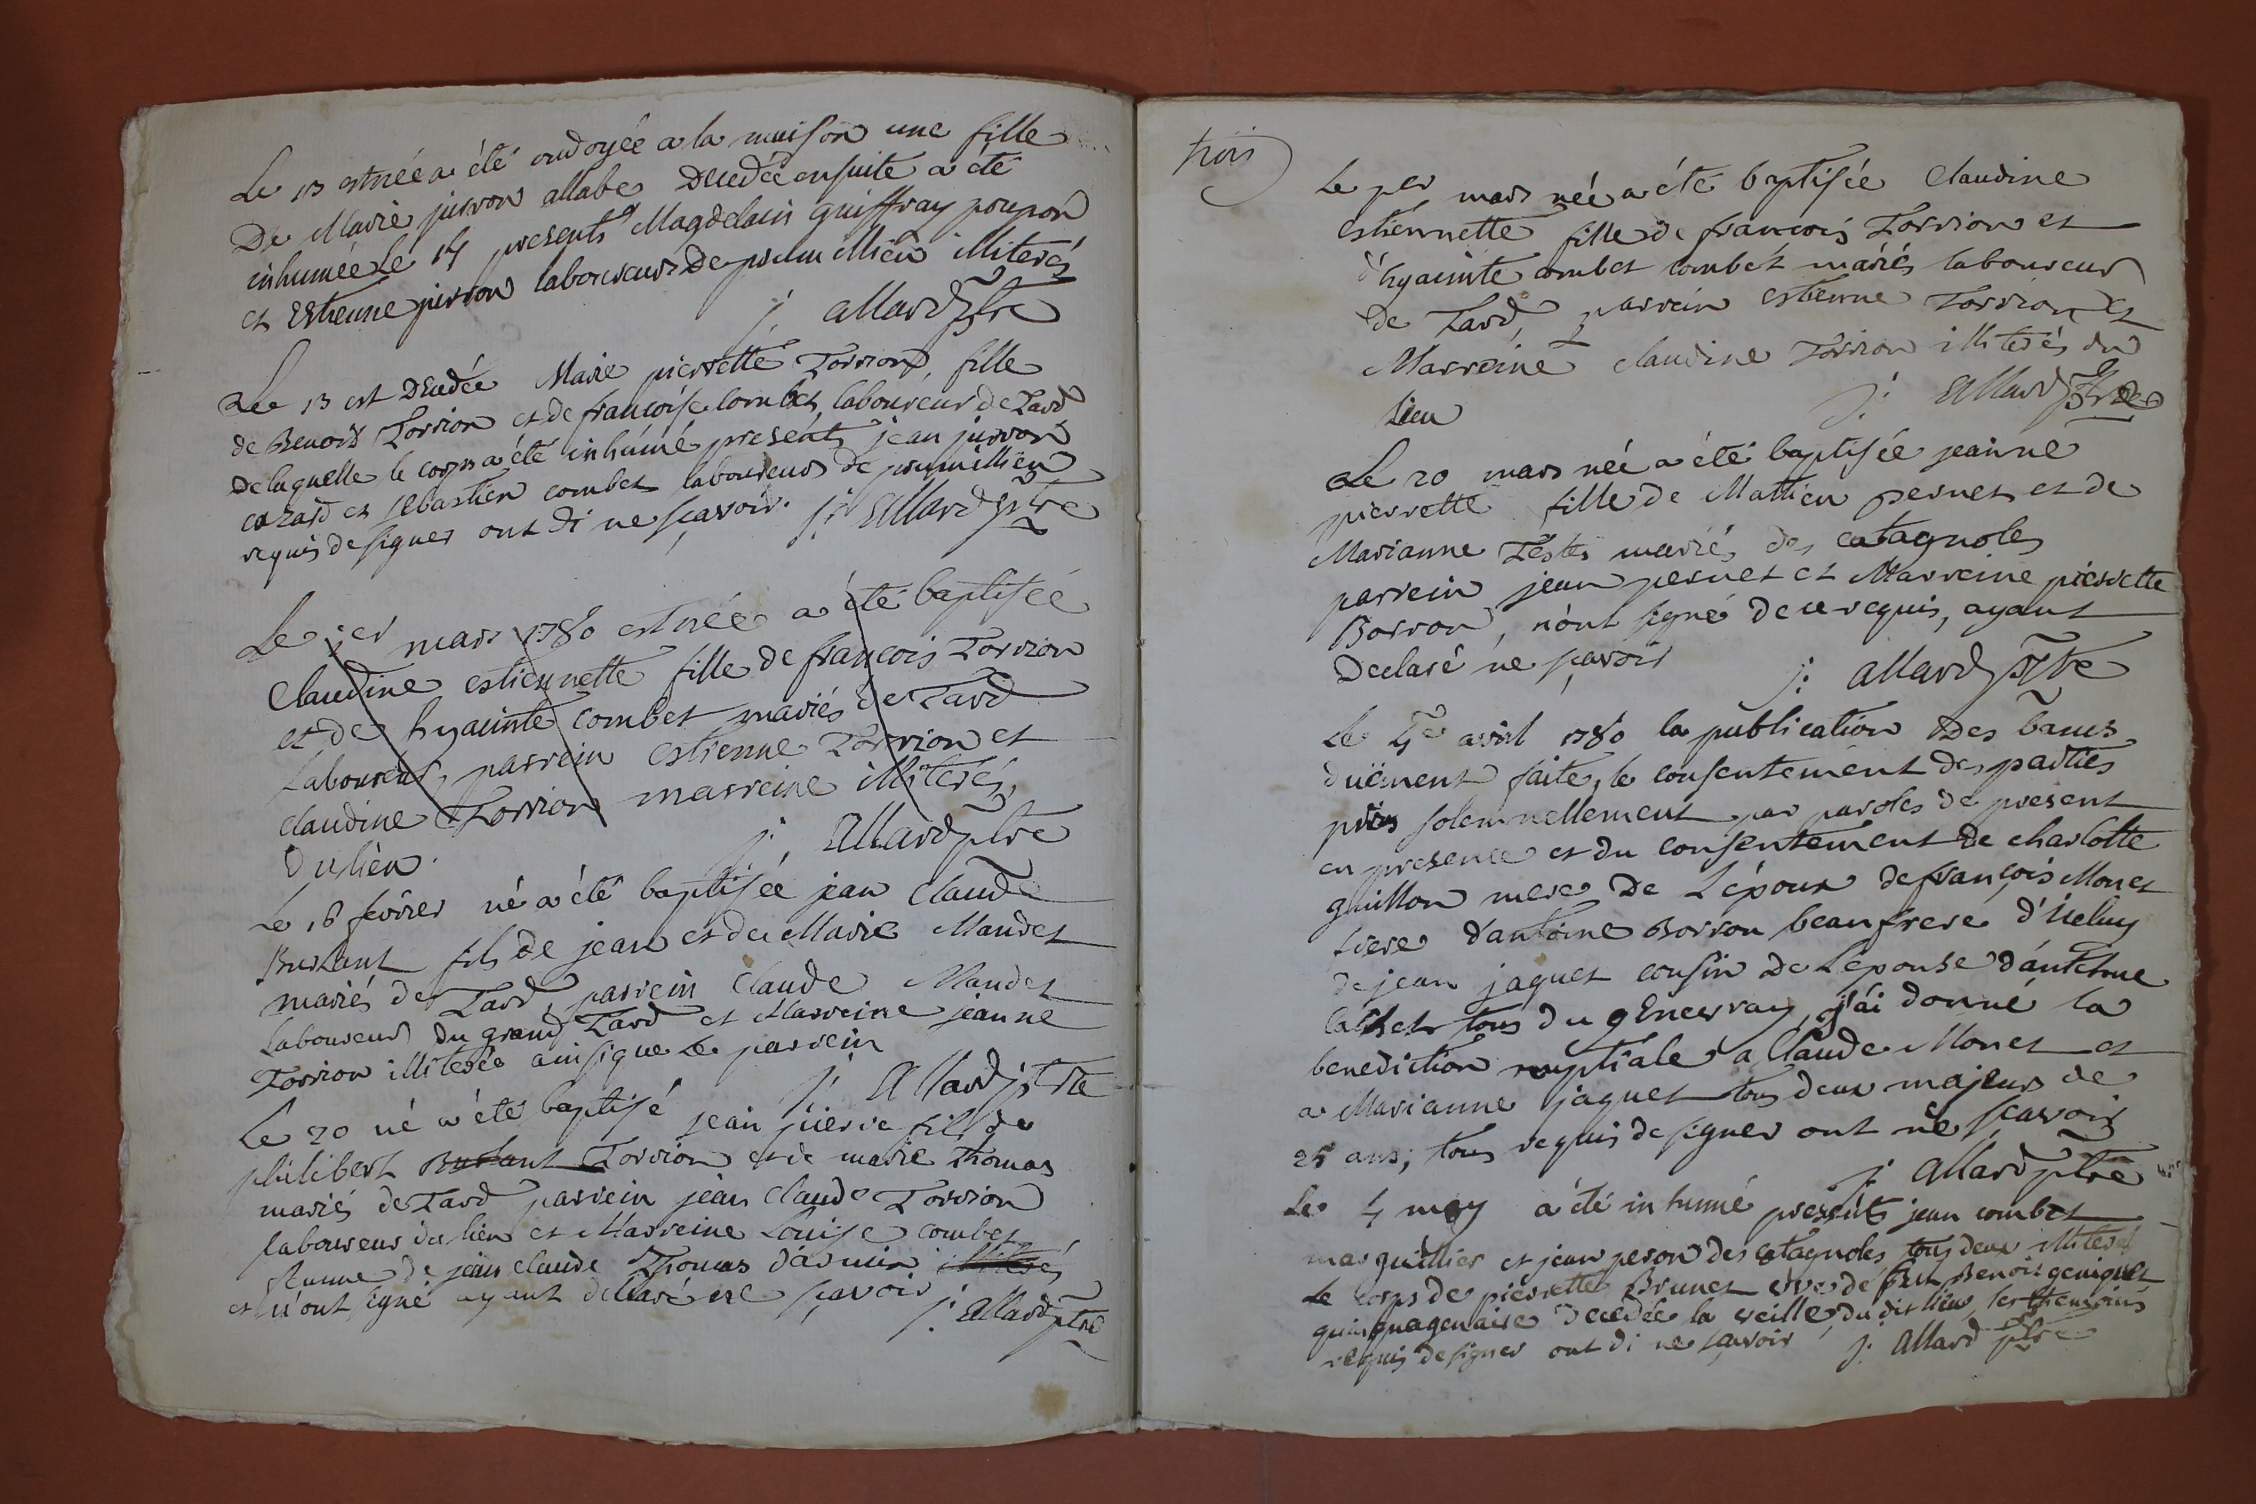 Le 13 est née a été ondoyée a la maison une fille
De Marie jurron allabe Decedée ensuite a été
inhumée Le 14 presents Magdelain guiffray poupon
et Estienne jurron laboureurs De prumillieu illiterés
j: allard ptre
Le 13 est Decedée Marie pierrette Torrion, fille
de Benoit Torrion et de françoise combet, laboureur de Tard
De laquelle le corps a été inhumé presents jean jurron
cazard et sebastien combet laboureurs de prumillieu
requis de signer ont di ne sçavoir. j: allard ptre
Le 1er mars 1780 est née a été baptisée
Claudine estiennette fille de françois Torrion
et de hyacinte combet mariés de Tard
Laboureur, parrein estienne Torrion et
claudine Torrion marreine illiterés,
du lieu. j: allard ptre
Le 16 fevrier né a été baptisée jean Claude
Burtant fils de jean et de Marie Maudet
mariés de Tard, parrein Claude Maudet
laboureur du grand Tard et Marreine jeanne
Torrion illiterée ainsi que le parrein
j: allard ptre
Le 20 né a été baptisé jean pierre fils de
philibert Burtant Torrion et de marie Thomas
mariés de Tard parrein jean Claude Torrion
laboureur du lieu et Marreine Louise combet
femme de jean claude Thomas d'armix illiterés
et n'ont signé ayant declaré ne sçavoir
j: allard ptre
trois
Le per mars née a été baptisée Claudine
estiennette fille de françois Torrion et
d'hyacinte combet combet mariés laboureur
de Tard, parrein estienne Torrion et
Marreine claudine Torrion illiterés du
Lieu j: allard ptre
Le 20 mars née a été baptisée jeanne
pierrette fille de Mattieu pernet et de
Marianne Teste mariés des catagnoles
parrein jean pernet et Marreine pierrette
Borron, n'ont signé de ce requis, ayant
Declaré ne sçavoir j: allard ptre
Le 4e avril 1780 la publication Des bancs
duëment faite, le consentement des parties
pris solemnellement par paroles de present
en presence et du consentement de charlotte
guillon mere De L'époux de françois Monet
frere d'antoine Borron beaufrere d'icelluy
de jean jaquet cousin De L'epouse d'antelme
tous du genevray, j'ai donné la
benediction nuptiale a Claude Monet et
a Marianne jaquet tous deux majeurs de
25 ans; tous requis de signer ont ne sçavoir
j: allard ptre
Le 4 may a été inhumé presents jean combet
marguillier et jean peron des catagnoles tous deux illiterés
Le corps de pierrette Brunet vve de feu Benoit geniquet
quinquagenaire Decedée la veille du dit lieu, les themoins
requis de signer ont di ne sçavoir j: allard ptre